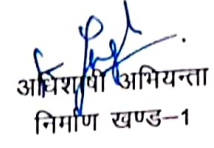 अधिशाषी अभियन्ता
निर्माण खण्ड-1